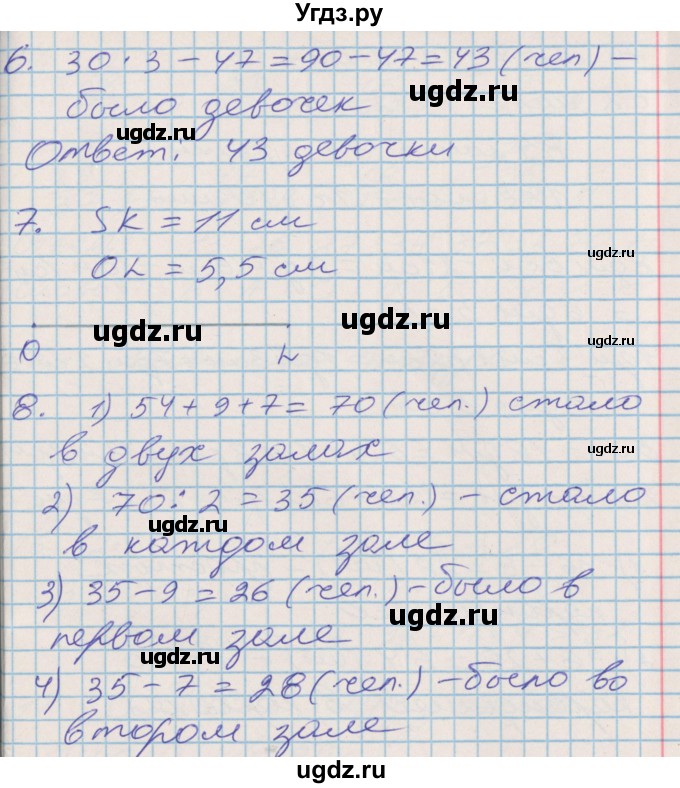 Угдз.ру
6. 30 · 3 – 47 = 90 – 47 = 43 (чел) –
было девочек
Ответ: 43 девочки
7. SK = 11 см
OL = 5,5 см
O L
8. 1) 54 + 9 + 7 = 70 (чел.) стало
в двух залах
2) 70 : 2 = 35 (чел.) – стало
в каждом зале
3) 35 – 9 = 26 (чел.) – было в
первом зале
4) 35 – 7 = 28 (чел.) – было во
втором зале
ugdz.ru
ugdz.ru
ugdz.ru
ugdz.ru
ugdz.ru
ugdz.ru
ugdz.ru
ugdz.ru
ugdz.ru
ugdz.ru
ugdz.ru
ugdz.ru
ugdz.ru